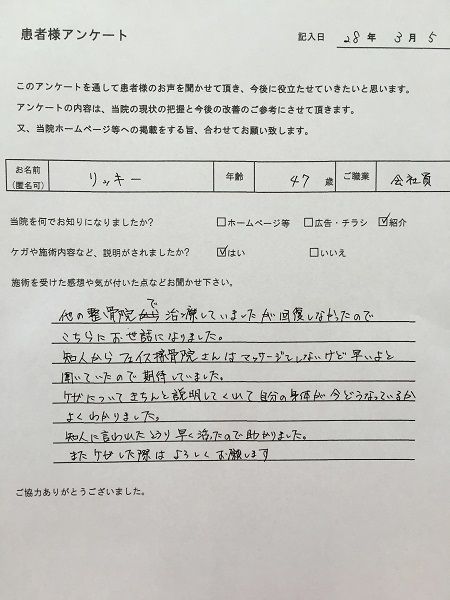 患者様アンケート
記入日 28年 3月 5
このアンケートを通して患者様のお声を聞かせて頂き、今後に役立たせていきたいと思います。
アンケートの内容は、当院の現状の把握と今後の改善のご参考にさせて頂きます。
又、当院ホームページ等への掲載をする旨、合わせてお願い致します。
お名前 (匿名可) リッキー 年齢 47 歳 ご職業 会社員
当院を何でお知りになりましたか? □ホームページ等 □広告・チラシ ☑紹介
ケガや施術内容など、説明がされましたか? ☑はい □いいえ
施術を受けた感想や気が付いた点などお聞かせ下さい。
他の整骨院で治療していましたが回復しなかったので
こちらにお世話になりました。
知人からフェイス接骨院さんはマッサージとしないけど早いよと
聞いていたので期待していました。
ケガについてきちんと説明してくれて自分の身体が今どうなっているか
よくわかりました。
知人に言われたとうり早く治ったので助かりました。
またケガした際はよろしくお願します
ご協力ありがとうございました。